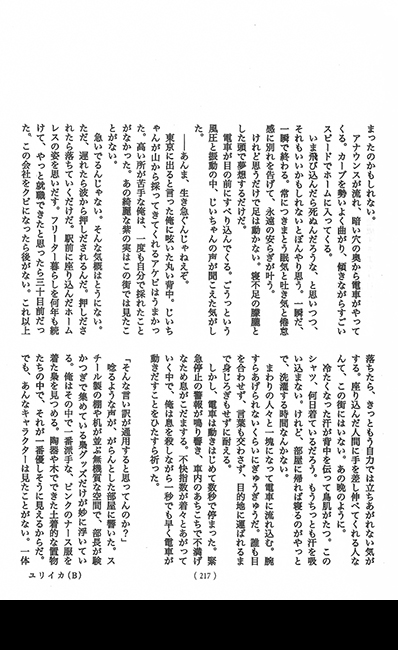 まったのかもしれない。
アナウンスが流れ、暗い穴の奥から電車がやって
くる。カーブを勢いよく曲がり、傾きながらすごい
スピードでホームに入ってくる。
いま飛び込んだら死ぬんだろうな、と思いつつ、
それもいいかもしれないとぼんやり思う。一瞬だ、
一瞬で終わる。常につきまとう眠気と吐き気と倦怠
感に別れを告げて、永遠の安らぎが叶う。
けれど思うだけで足は動かない。寝不足の朦朧と
した頭で夢想するだけだ。
電車が目の前にすべり込んでくる。ごうっという
風圧と振動の中、じいちゃんの声が聞こえた気がし
た。
――あんま、生き急ぐんじゃねえぞ。
東京に出ると言った俺に呟いた丸い背中。じいち
ゃんが山から採ってきてくれるアケビはうまかっ
た。高い所が苦手な俺は、一度も自分で採れたこと
がなかった。あの綺麗な紫の実はこの街では見たこ
とがない。
急いでるんじゃない。そんな気概はとうにない。
ただ、遅れたら波から押しだされるんだ。押しださ
れたら落ちていくだけだ。駅前に座り込んだホーム
レスの姿を思いだす。フリーター暮らしを何年も続
けて、やっと就職できたと思ったら三十目前だっ
た。この会社をクビになったら後がない。これ以上
落ちたら、きっともう自力では立ちあがれない気が
する。座り込んだ人間に手を差し伸べてくれる人な
んて、この街にはいない。あの晩のように。
冷たくなった汗が背中を伝って鳥肌がたつ。この
シャツ、何日着ているだろう。もうちっとも汗を吸
い込まない。けれど、部屋に帰れば寝るのがやっと
で、洗濯する時間なんかない。
まわりの人々と一塊になって電車に流れ込む。腕
すらあげられないくらいにぎゅうぎゅうだ。誰も目
を合わせず、言葉も交わさず、目的地に運ばれるま
で身じろぎもせずに耐える。
しかし、電車は動きはじめて数秒で停まった。緊
急停止の警報が鳴り響き、車内のあちこちで不満げ
なため息がこだまする。不快指数が着々とあがって
いく中で、俺は息を殺しながら一秒でも早く電車が
動きだすことをひたすら祈った。
「そんな言い訳が通用すると思ってんのか？」
唸るような声が、がらんとした部屋に響いた。ス
チール製の棚や机が並ぶ無機質な空間で、部長が験
かつぎで集めている梟グッズだけが妙に浮いてい
る。俺はその中で一番派手な、ピンクのナース服を
着た梟を見つめる。陶器や木でできた土着的な置物
たちの中で、それが一番優しそうに見えるからだ。
でも、あんなキャラクターは見たことがない。一体
(217)
ユリイカ(B)